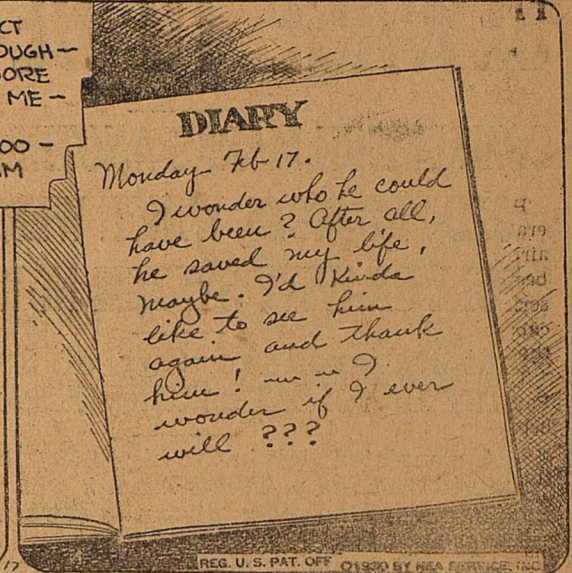 CT
OUGH—
ORE
ME—
OO—
M
DIARY
Monday Feb 17.
I wonder who he could
have been? After all,
he saved my life,
maybe. I'd Kinda
like to see him
again and thank
him! — — I
wonder if I ever
will ???
17
REG. U. S. PAT. OFF
©1930 BY NEA SERVICE, INC.